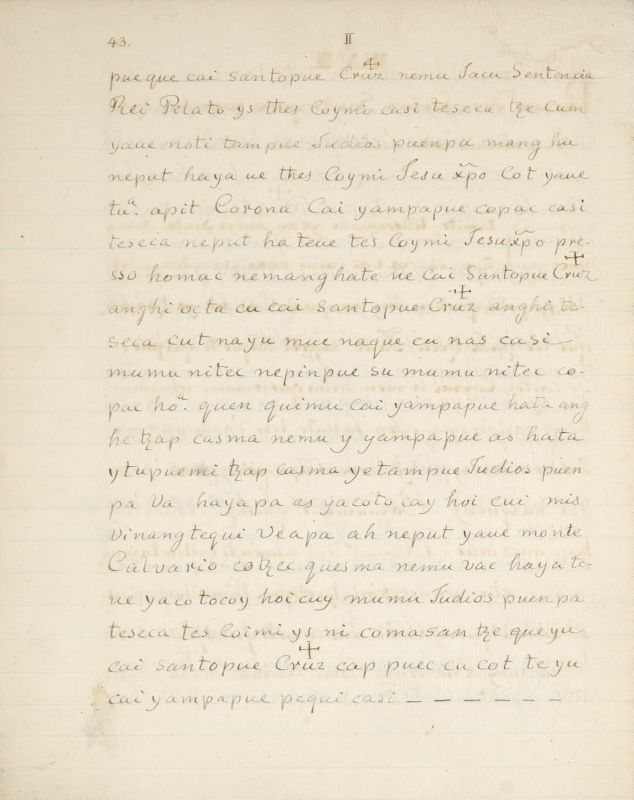 43. II
pueque cai santopue Cruz nemu Jacu Sentencia
Rei Pilato ys thes Coymi casi teseca tze cum
yaue noti tampue Judios puenpa mang hu
neput haya ue thes Coymi Jesu xpõ Cot yaue
tuª. apit Corona Cai yampapue copac casi
teseca neput ha teue tes Coymi Jesu xpõ pre-
sso homac nemanghate ue cai Santopue Cruz
anghi octa cu cai santopue Cruz anghi te-
seca cut nayu muc naque cu nas casi
mumu nitec nepinpue su mumu nitec co-
pac hoª. quen quimu cai yampapue hata ang
he tzap casma nemu y yampapue as hata
ytupuemi tzap casma yetampue Judios puen
pa Va hayapa as yacoto cay hoi cui mis
vinangtequi Veapa ah neput yaue monte
Calvario cotzec quesma nemu vac haya te-
ue yacotocoy hoicuy mumu Judios puenpa
teseca tes Coimi ys ni comasan tze queyu
cai santopue Cruz cap puec cu cot te yu
cai yampapue pequi casi — — — — — —